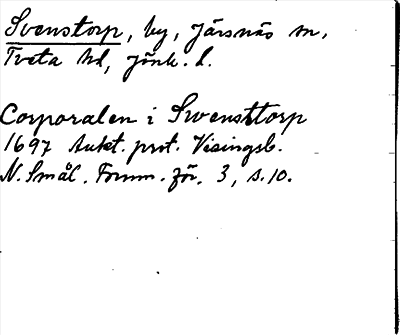 Svenstorp, by, Järsnäs sn,
Tveta hd, Jönk. l.
Corporalen i Swensttorp
1697 Aukt. prot. Visingsb.
N. Smål. Fornm.för. 3, s. 10.